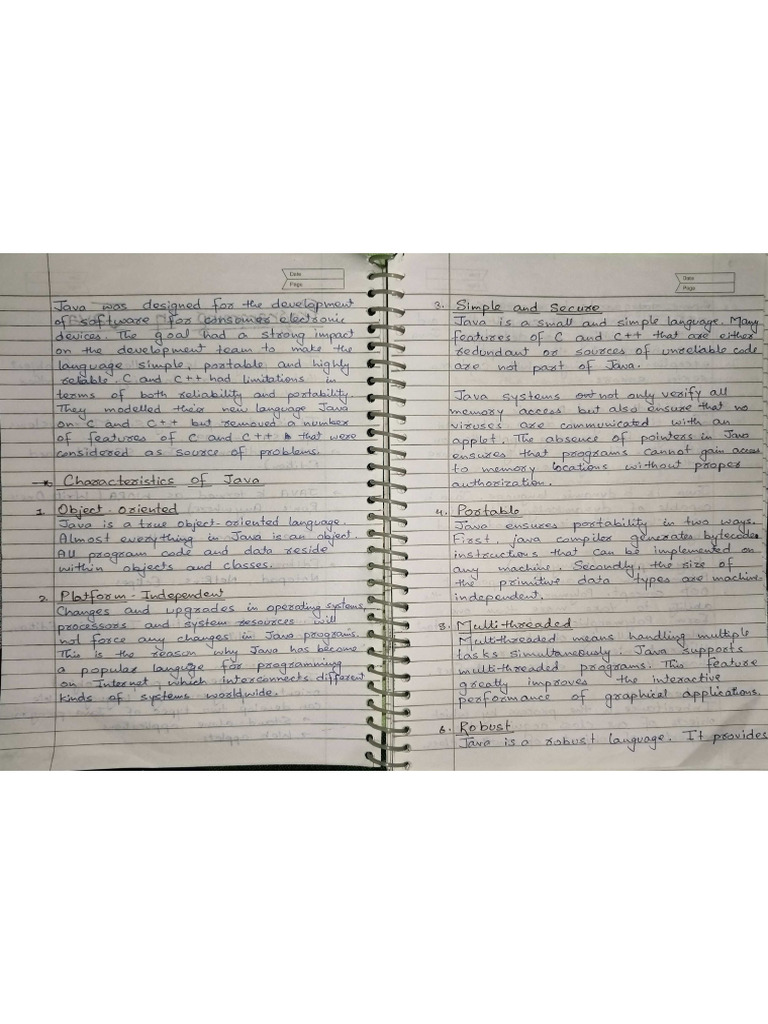 Date
Page
Java was designed for the development
of software for consumer electronic
devices. The goal had a strong impact
on the development team to make the
language simple, portable and highly
reliable. C and C++ had limitations in
terms of both reliability and portability.
They modelled their new language Java
on C and C++ but removed a number
of features of C and C++ that were
considered as source of problems.
Characteristics of Java
1. Object-oriented
Java is a true object-oriented language.
Almost everything in Java is an object.
All program code and data reside
within objects and classes.
2. Platform-Independent
Changes and upgrades in operating systems,
processors and system resources will
not force any changes in Java programs.
This is the reason why Java has become
a popular language for programming
on Internet, which interconnects different
kinds of systems worldwide.
Date
Page
3. Simple and Secure
Java is a small and simple language. Many
features of C and C++ that are either
redundant or sources of unreliable code
are not part of Java.
Java systems not only verify all
memory access but also ensure that no
viruses are communicated with an
applet. The absence of pointers in Java
ensures that programs cannot gain access
to memory locations without proper
authorization.
4. Portable
Java ensures portability in two ways.
First, java compiler generates bytecode
instructions that can be implemented on
any machine. Secondly, the size of
the primitive data types are machine-
independent.
5. Multithreaded
Multithreaded means handling multiple
tasks simultaneously. Java supports
multi-threaded programs. This feature
greatly improves the interactive
performance of graphical applications.
6. Robust
Java is a robust language. It provides